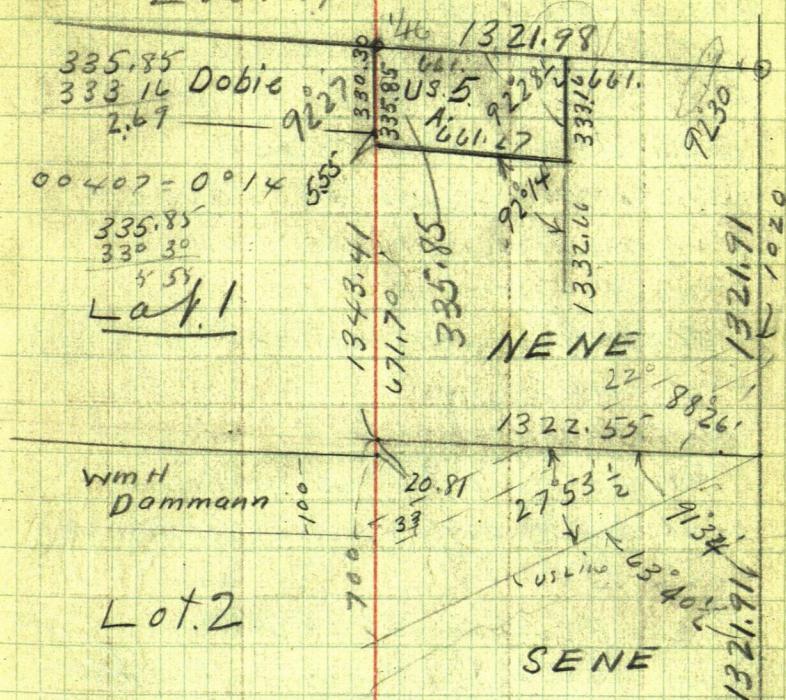 1/46
1321.98
335.85
333 16
2.69
Dobie
92°27'
330.30
335.85
661.
U.S. 5
A.
661.27
92°28½
333.16
661.
92°30
00407 = 0°14
5.55
92°14
335.85
330 30
5 55
Lot.1
1343.41
671.70
335.85
1332.66
1321.91
1020
NENE
22°
88°26'
1322.55
Wm H
Dammann
100
20.81
33
27°53½
91°34'
700
US Line
63°40½
Lot.2
1321.91
SENE